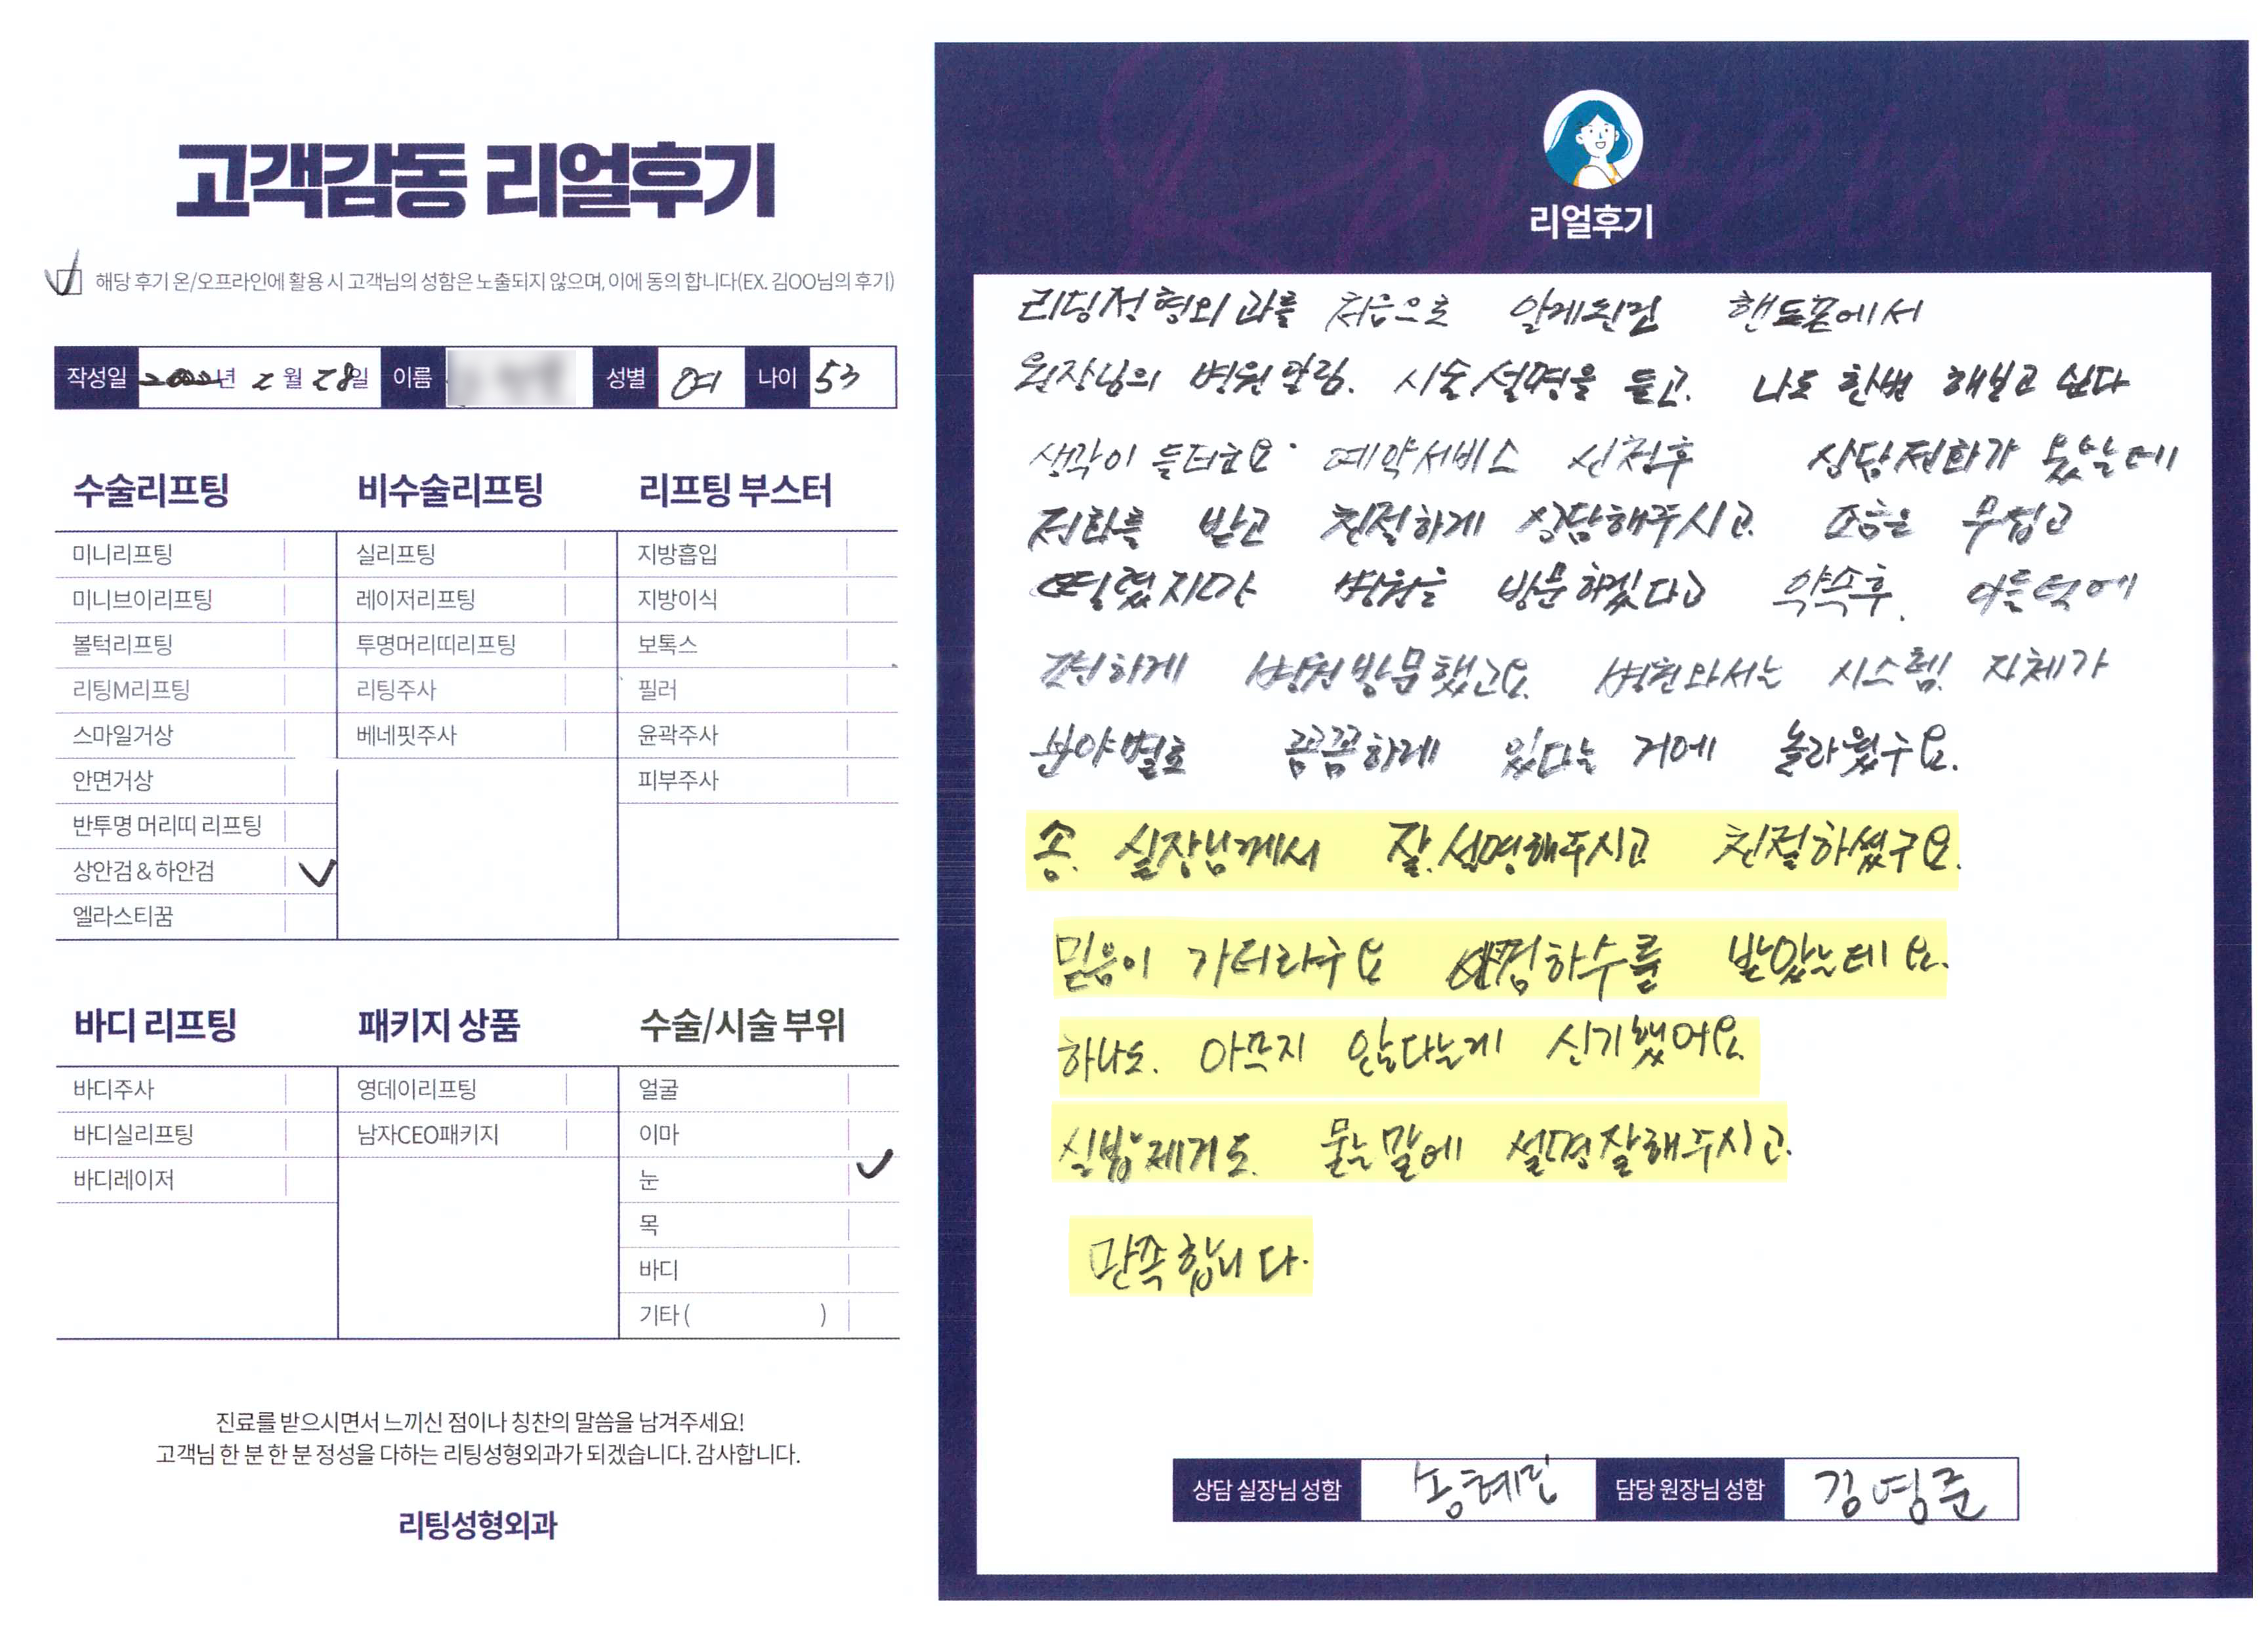 고객감동 리얼후기
해당 후기 온/오프라인에 활용 시 고객님의 성함은 노출되지 않으며, 이에 동의 합니다(EX. 김OO님의 후기)
작성일 년 2월 28일 이름 성별 여 나이 53
수술리프팅
미니리프팅
미니브이리프팅
볼턱리프팅
리팅M리프팅
스마일거상
안면거상
반투명 머리띠 리프팅
상안검 & 하안검
엘라스티꿈
비수술리프팅
실리프팅
레이저리프팅
투명머리띠리프팅
리팅주사
베네핏주사
리프팅 부스터
지방흡입
지방이식
보톡스
필러
윤곽주사
피부주사
바디 리프팅
바디주사
바디실리프팅
바디레이저
패키지 상품
영데이리프팅
남자CEO패키지
수술/시술 부위
얼굴
이마
눈
목
바디
기타 ( )
진료를 받으시면서 느끼신 점이나 칭찬의 말씀을 남겨주세요!
고객님 한 분 한 분 정성을 다하는 리팅성형외과가 되겠습니다. 감사합니다.
리팅성형외과
리얼후기
리팅성형외과를 처음으로 알게된건 핸드폰에서
원장님의 병원알림. 시술.설명을 듣고. 나도 한번 해보고 싶다
생각이 들더군요. 예약서비스 신청후 상담전화가 왔는데
전화를 받고 친절하게 상담해주시고. 조금은 무섭고
떨렸지만 병원을 방문하겠다고 약속후. 아들덕에
편하게 병원방문했고요. 병원와서는 시스템 자체가
분야별로 꼼꼼하게 있다는 거에 놀라웠구요.
송. 실장님께서 잘.설명해주시고 친절하셨구요.
믿음이 가더라구요 하수를 받았는데요.
하나도. 아프지 않다는게 신기했어요.
실밥제거도. 묻는말에 설명잘해주시고.
만족합니다.
상담 실장님 성함 송혜민 담당 원장님 성함 김영준